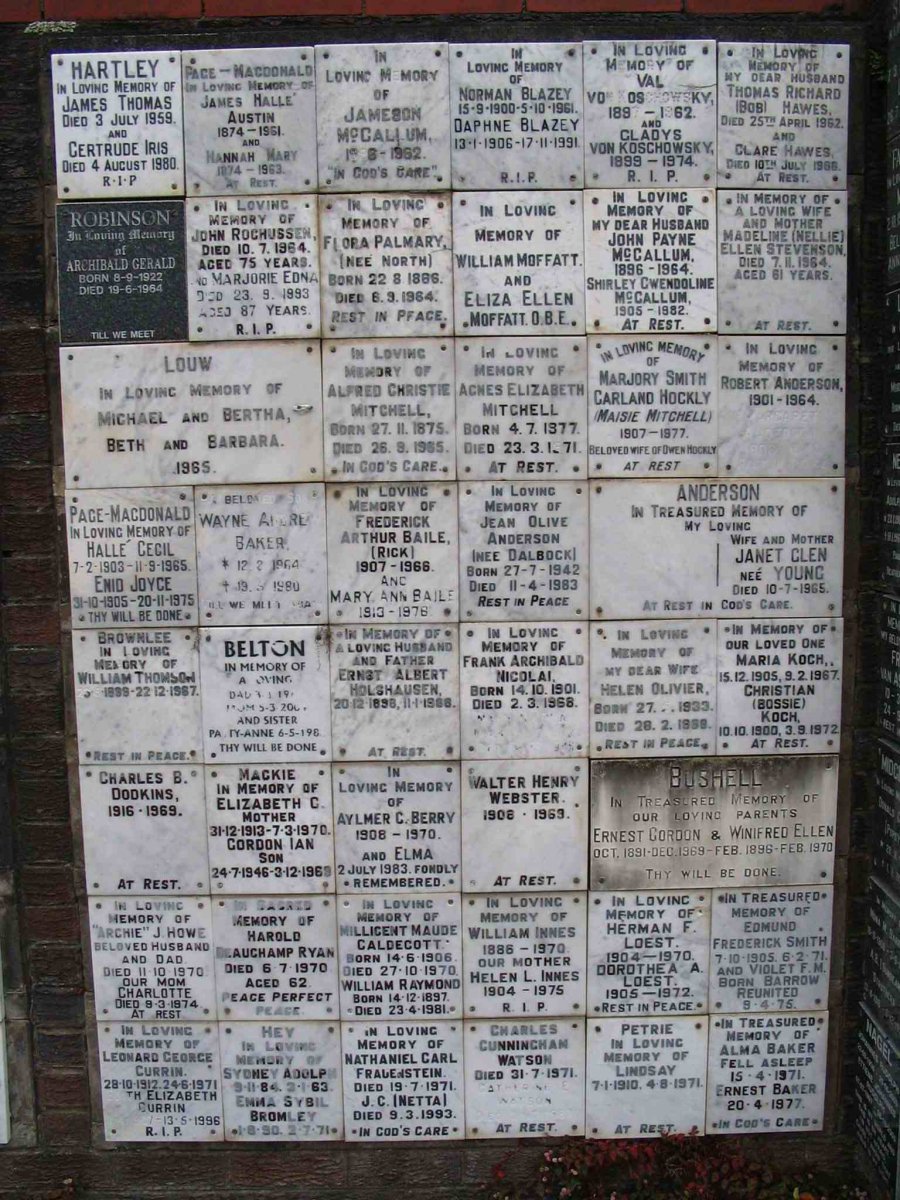 HARTLEY
IN LOVING MEMORY OF
JAMES THOMAS
DIED 3 JULY 1959.
AND
GERTRUDE IRIS
DIED 4 AUGUST 1980.
R.I.P
PAGE-MACDONALD
IN LOVING MEMORY OF
JAMES HALLE'
AUSTIN
1874-1961.
AND
HANNAH MARY
1874-1963.
AT REST.
IN
LOVING MEMORY
OF
JAMESON
McCALLUM,
1962.
"IN GOD'S CARE".
IN
LOVING MEMORY
OF
NORMAN BLAZEY
15-9-1900-5-10-1961.
DAPHNE BLAZEY
13-1-1906-17-11-1991.
R.I.P.
IN LOVING
MEMORY OF
VAL
VON KOSCHOWSKY,
1897-1962.
AND
GLADYS
VON KOSCHOWSKY,
1899-1974.
R.I.P.
IN LOVING
MEMORY OF
MY DEAR HUSBAND
THOMAS RICHARD
(BOB) HAWES,
DIED 25TH APRIL 1962.
AND
CLARE HAWES,
DIED 10TH JULY 1966.
AT REST.
ROBINSON
In Loving Memory
of
ARCHIBALD GERALD
BORN 8-9-1922
DIED 19-6-1964
TILL WE MEET
IN LOVING
MEMORY OF
JOHN ROCHUSSEN,
DIED 10.7.1964.
AGED 75 YEARS.
AND MARJORIE EDNA
DIED 23.9.1993
AGED 87 YEARS.
R.I.P.
IN LOVING
MEMORY OF
FLORA PALMARY,
(NEE NORTH)
BORN 22 8 1886.
DIED 6.9.1964.
REST IN PEACE.
IN LOVING
MEMORY OF
WILLIAM MOFFATT.
AND
ELIZA ELLEN
MOFFATT. O.B.E.
IN LOVING
MEMORY OF
MY DEAR HUSBAND
JOHN PAYNE
McCALLUM.
1896-1964.
SHIRLEY GWENDOLINE
McCALLUM.
1905-1982.
AT REST.
IN MEMORY OF
A LOVING WIFE
AND MOTHER
MADELINE (NELLIE)
ELLEN STEVENSON,
DIED 7.11.1964.
AGED 61 YEARS.
AT REST.
LOUW
IN LOVING MEMORY OF
MICHAEL AND BERTHA,
BETH AND BARBARA.
1965.
IN LOVING
MEMORY OF
ALFRED CHRISTIE
MITCHELL,
BORN 27.11.1875.
DIED 26.9.1965.
IN GOD'S CARE.
IN LOVING
MEMORY OF
AGNES ELIZABETH
MITCHELL
BORN 4.7.1377.
DIED 23.3.1 71.
AT REST.
IN LOVING MEMORY
OF
MARJORY SMITH
GARLAND HOCKLY
(MAISIE MITCHELL)
1907-1977.
BELOVED WIFE OF OWEN HOCKLY
AT REST
IN LOVING
MEMORY OF
ROBERT ANDERSON,
1901-1964.
PAGE-MACDONALD
IN LOVING MEMORY OF
HALLE' CECIL
7-2-1903-11-9-1965.
ENID JOYCE
31-10-1905-20-11-1975
THY WILL BE DONE
WAYNE
BAKER.
1964
1980
TILL WE MEET
IN LOVING
MEMORY OF
FREDERICK
ARTHUR BAILE,
(RICK)
1907-1966.
AND
MARY ANN BAILE
1913-1976
IN LOVING
MEMORY OF
JEAN OLIVE
ANDERSON
(NEE DALBOCK)
BORN 27-7-1942
DIED 11-4-1983
REST IN PEACE
ANDERSON
IN TREASURED MEMORY OF
MY LOVING
WIFE AND MOTHER
JANET GLEN
NEÉ YOUNG
DIED 10-7-1965.
AT REST IN GOD'S CARE.
BROWNLEE
IN LOVING
MEMORY OF
WILLIAM THOMSON
1899-22-12-1967.
REST IN PEACE.
BELTON
IN MEMORY OF
A LOVING
DAD
MOM 5-3-200
AND SISTER
PATTY-ANNE 6-5-198
THY WILL BE DONE
IN MEMORY OF
A LOVING HUSBAND
AND FATHER
ERNST ALBERT
HOLSHAUSEN,
20-12-1898, 11-1-1968.
AT REST.
IN LOVING
MEMORY OF
FRANK ARCHIBALD
NICOLAI,
BORN 14.10.1901.
DIED 2.3.1968.
IN LOVING
MEMORY OF
MY DEAR WIFE
HELEN OLIVIER,
BORN 27. 1933.
DIED 28.2.1968.
REST IN PEACE
IN MEMORY OF
OUR LOVED ONE
MARIA KOCH,
15.12.1905, 9.2.1967.
CHRISTIAN
(BOSSIE)
KOCH,
10.10.1900, 3.9.1972.
AT REST.
CHARLES B.
DODKINS,
1916-1969.
AT REST.
MACKIE
IN MEMORY OF
ELIZABETH C.
MOTHER
31-12-1913-7-3-1970.
GORDON IAN
SON
24-7-1946-3-12-1969
IN
LOVING MEMORY
OF
AYLMER C. BERRY
1908-1970.
AND ELMA
2 JULY 1983. FONDLY
REMEMBERED.
WALTER HENRY
WEBSTER.
1908-1969.
AT REST.
BUSHELL
IN TREASURED MEMORY OF
OUR LOVING PARENTS
ERNEST GORDON & WINIFRED ELLEN
OCT. 1891-DEC.1969-FEB. 1896-FEB. 1970
THY WILL BE DONE.
IN LOVING
MEMORY OF
"ARCHIE" J. HOWE
BELOVED HUSBAND
AND DAD.
DIED 11-10-1970
OUR MOM
CHARLOTTE
DIED 9-3-1974
AT REST
IN SACRED
MEMORY OF
HAROLD
BEAUCHAMP RYAN
DIED 6-7-1970
AGED 62.
PEACE PERFECT
PEACE.
IN LOVING
MEMORY OF
MILLICENT MAUDE
CALDECOTT.
BORN 14-6-1906.
DIED 27-10-1970.
WILLIAM RAYMOND
BORN 14-12-1897.
DIED 23-4-1981.
IN LOVING
MEMORY OF
WILLIAM INNES
1886-1970.
OUR MOTHER
HELEN L. INNES
1904-1975
R.I.P.
IN LOVING
MEMORY OF
HERMAN F.
LOEST.
1904-1970.
DOROTHEA A.
LOEST.
1905-1972.
REST IN PEACE.
IN TREASURED
MEMORY OF
EDMUND
FREDERICK SMITH
7-10-1905. 6-2-71.
AND VIOLET F.M.
BORN BARROW
REUNITED
9-4-75.
IN LOVING
MEMORY OF
LEONARD GEORGE
CURRIN.
28-10-1912. 24-6-1971
ELIZABETH
CURRIN
13-5-1996
R.I.P.
HEY
IN LOVING
MEMORY OF
SYDNEY ADOLPH
9-11-84. 3-1-63.
EMMA SYBIL
BROMLEY
1-8-90. 2-7-71
IN LOVING
MEMORY OF
NATHANIEL CARL
FRAUENSTEIN.
DIED 19-7-1971.
J.C.(NETTA)
DIED 9.3.1993.
IN GOD'S CARE
CHARLES
CUNNINGHAM
WATSON
DIED 31-7-1971.
WATSON
AT REST.
PETRIE
IN LOVING
MEMORY OF
LINDSAY
7-1-1910. 4-8-1971.
AT REST.
IN TREASURED
MEMORY OF
ALMA BAKER
FELL ASLEEP
15-4-1971.
ERNEST BAKER
20-4-1977.
IN GOD'S CARE